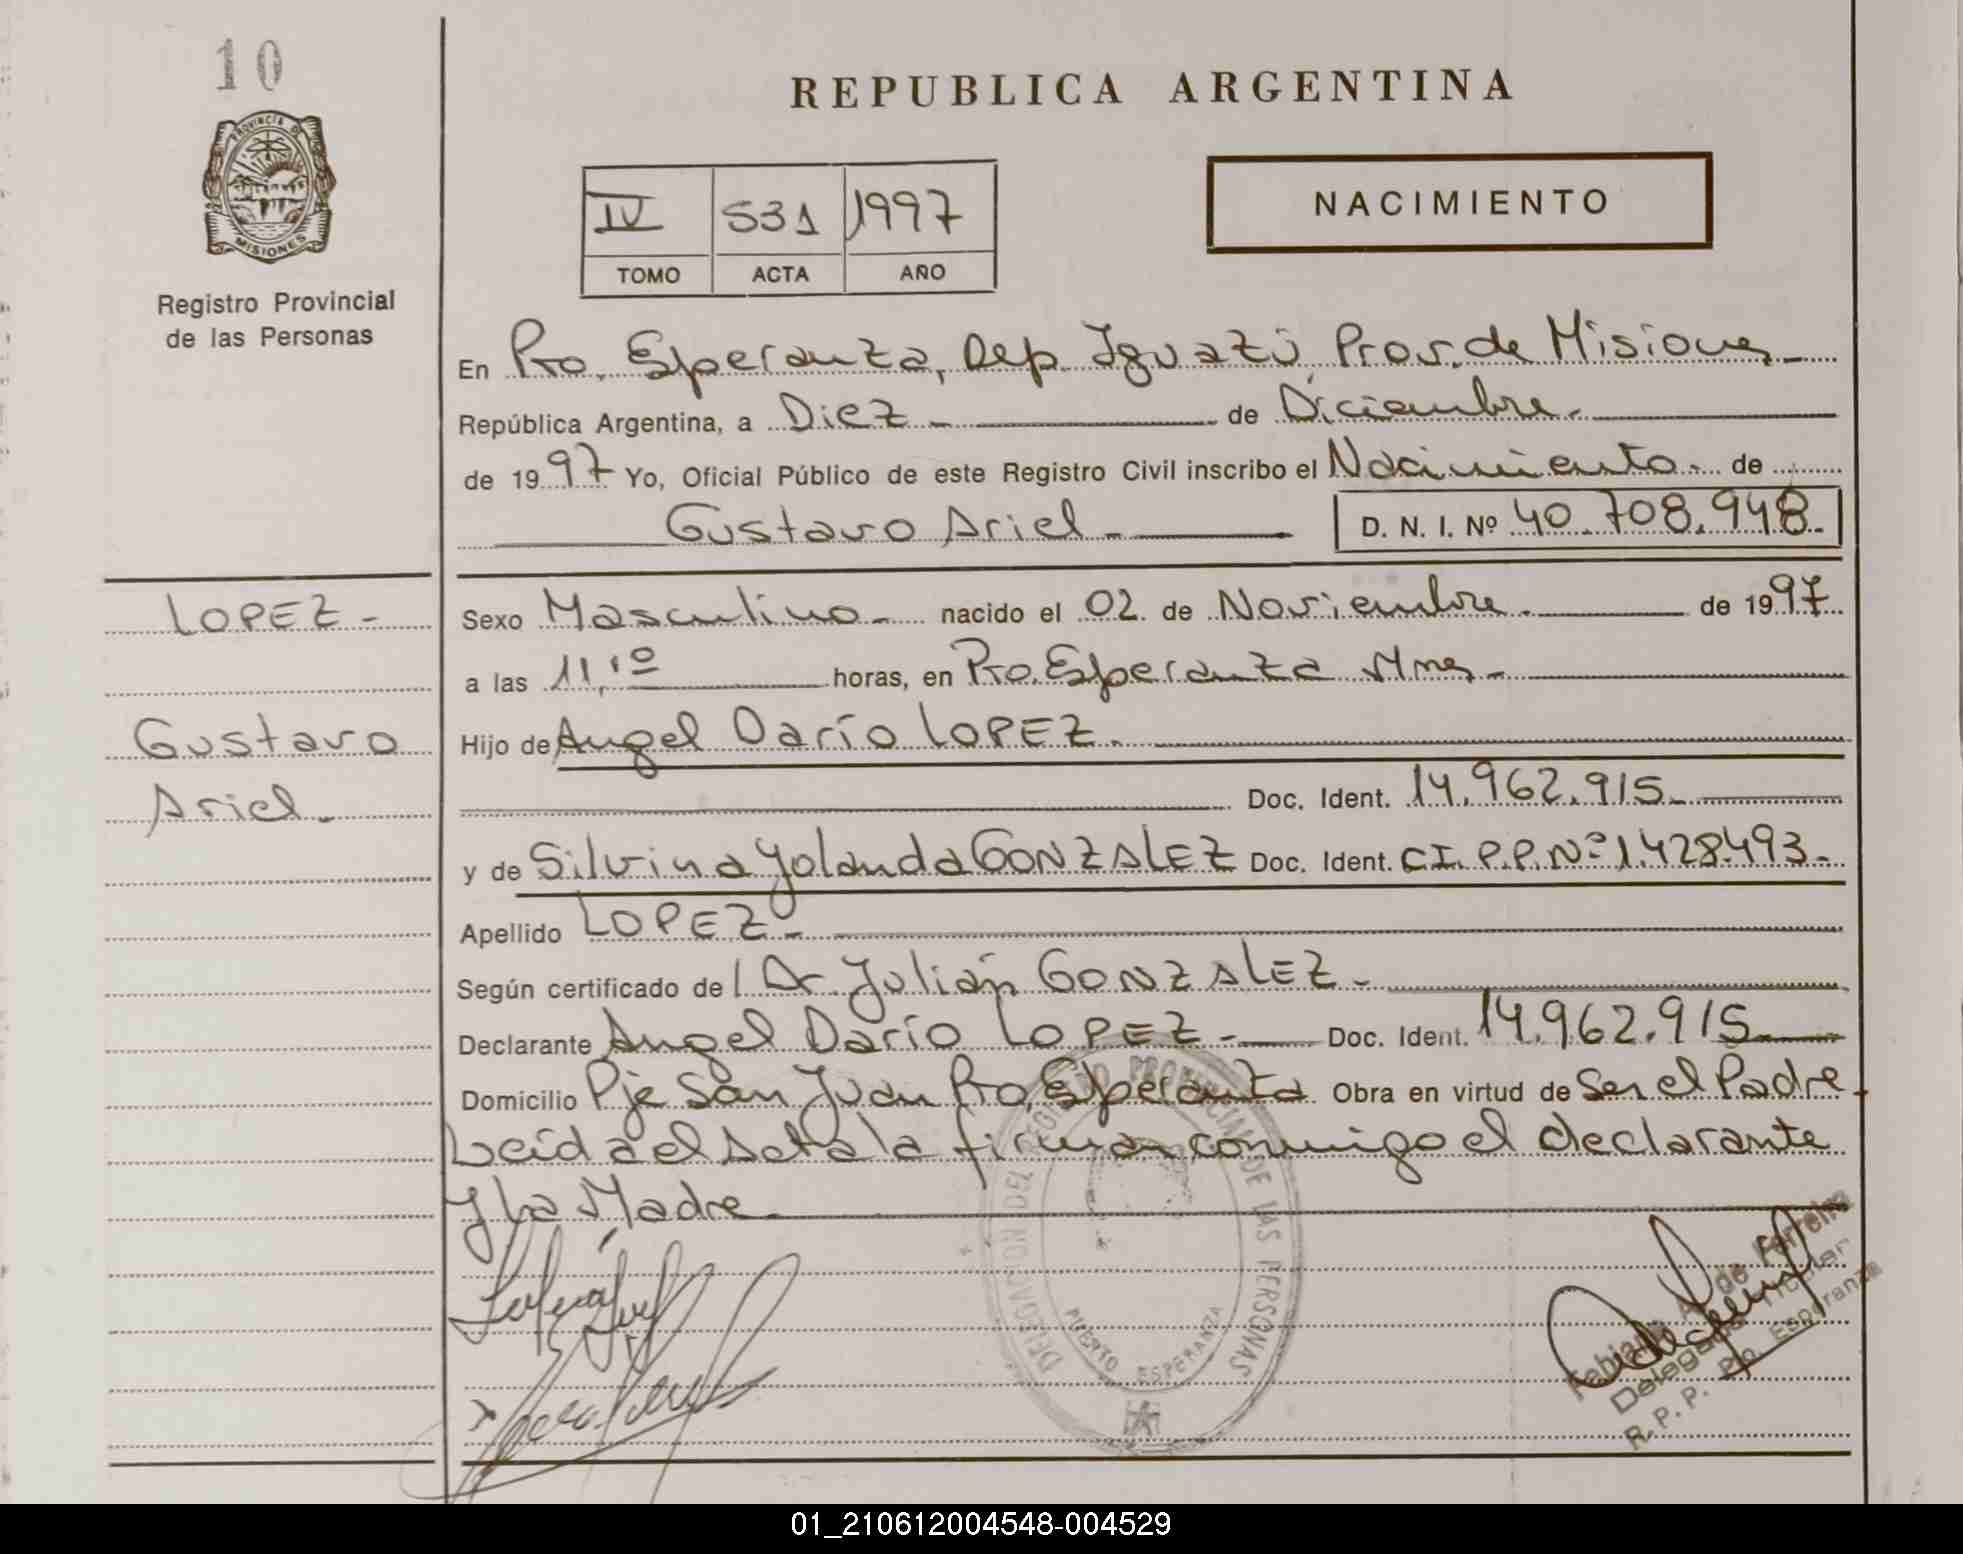 10
REPUBLICA ARGENTINA
PROVINCIA DE
MISIONES
Registro Provincial
de las Personas
NACIMIENTO
IV 531 1997
TOMO ACTA AÑO
En Pto. Esperanza, Dep. Iguazú, Prov. de Misiones
República Argentina, a Diez de Diciembre.
de 1997 Yo, Oficial Público de este Registro Civil inscribo el Nacimiento. de
Gustavo Ariel D. N. I. Nº 40.708.948.
LOPEZ -
Sexo Masculino nacido el 02 de Noviembre. de 1997
a las 11,10 horas, en Pto. Esperanza Mnes
Gustavo
Ariel
Hijo de Angel Darío LOPEZ.
Doc. Ident. 14.962.915
y de Silvina Yolanda GONZALEZ Doc. Ident. C.I. P.P. Nº 1.428.493.
Apellido LOPEZ
Según certificado de l Dr. Julián GONZALEZ
Declarante Angel Darío LOPEZ Doc. Ident. 14.962.915
Domicilio Pje San Juan Pto. Esperanza Obra en virtud de Ser el Padre
Leída el Acta la firman conmigo el declarante
y La Madre
DELEGACION DEL REGISTRO PROVINCIAL DE LAS PERSONAS
PUERTO ESPERANZA
de Ferreira
Delegada Titular
R. P. P. Pto. Esperanza
01_210612004548-004529